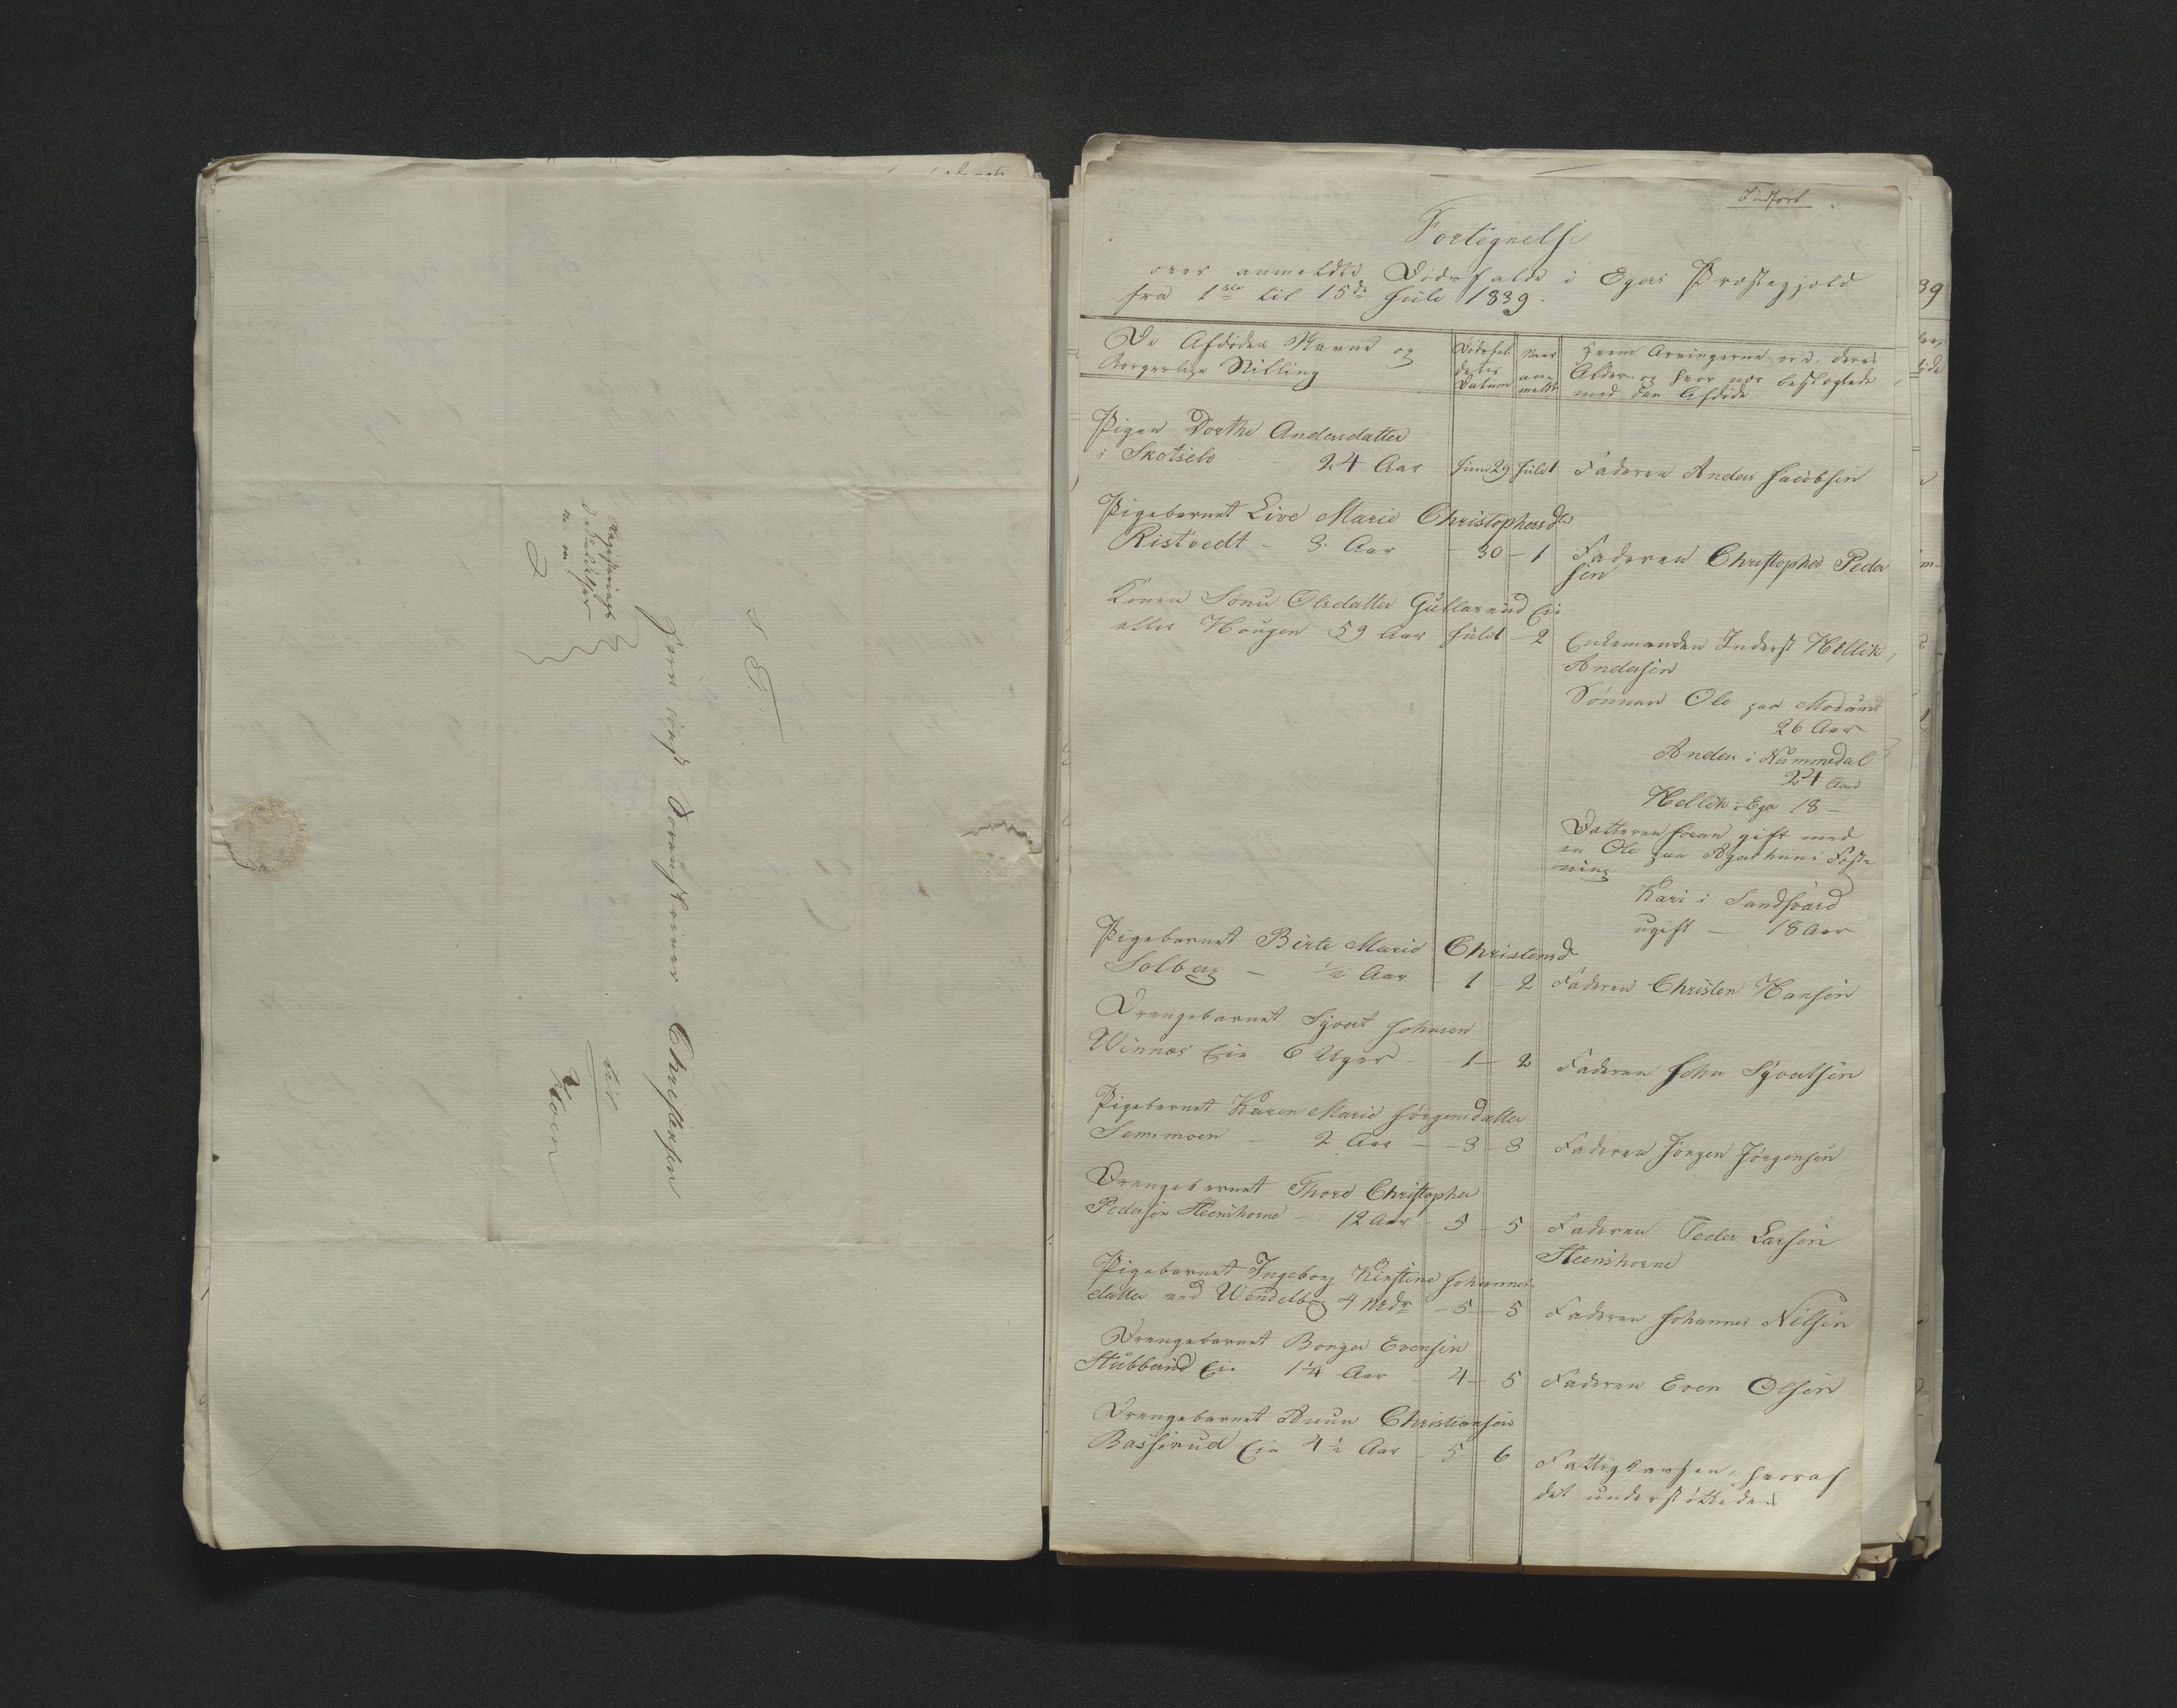 S. T.
Herr constt Sorenskriver Christensen
til
Hoen
Registerings
n. m.
Indført
Fortegnelse
over anmeldte Dødsfalde i Egers Præstegjeld
fra 1ste til 15de Juli 1839.
De Afdødes Navne og
Borgerlige Stilling
Dødsfal-
dets
Datum
Naar
an-
meldt
Hvem Arvingerne ere, deres
Alder og hvor nær beslægtede
med den Afdøde
Pigen Dorthe Andersdatter
i Skotselv - 24 Aar Juni 29 Juli 1 Faderen Anders Jacobsen
Pigebarnet Live Marie Christophersdtr
Ristvedt - 3 Aar - 30 - 1 Faderen Christopher Peder
sen
Konen Olsdatter Gullerud Eie
eller Hougen 59 Aar Juli 1 - 2 Enkemanden Inderst Hellik
Andersen
Sønnen Ole paa Modum
26 Aar
Anders i Nummedal
24 Aar
Hellik i Eger 18 -
Datteren Joran gift med
en Ole paa Agershuus Fæst-
ning
Kari i Sandsværd
ugift - 18 Aar
Pigebarnet Birte Marie Christensd
Solberg - ½ Aar 1 - 2 Faderen Christen Hansen
Drengebarnet Syvert Johnsen
Winnæs Eie 6 Uger - 1 - 2 Faderen John Syvertsen
Pigebarnet Karen Marie Jørgensdatter
Semsmoen - 2 Aar - 3 - 3 Faderen Jørgen Jørgensen
Drengebarnet Thore Christopher
Pedersen Steenshorne - 12 Aar - 5 - 5 Faderen Peder Larsen
Steenshorne
Pigebarnet Ingeborg Kirstine Johannes-
datter ved Wendelborg 4 Mdr - 5 - 5 Faderen Johannes Nilsen
Drengebarnet Borger Evensen
Stubberud Eie 1¼ Aar - 4 - 5 Faderen Even Olsen
Drengebarnet Christiansen
Basserud Eie 4½ Aar - 5 - 6 Fattigkassen, hvoraf
det understøttedes